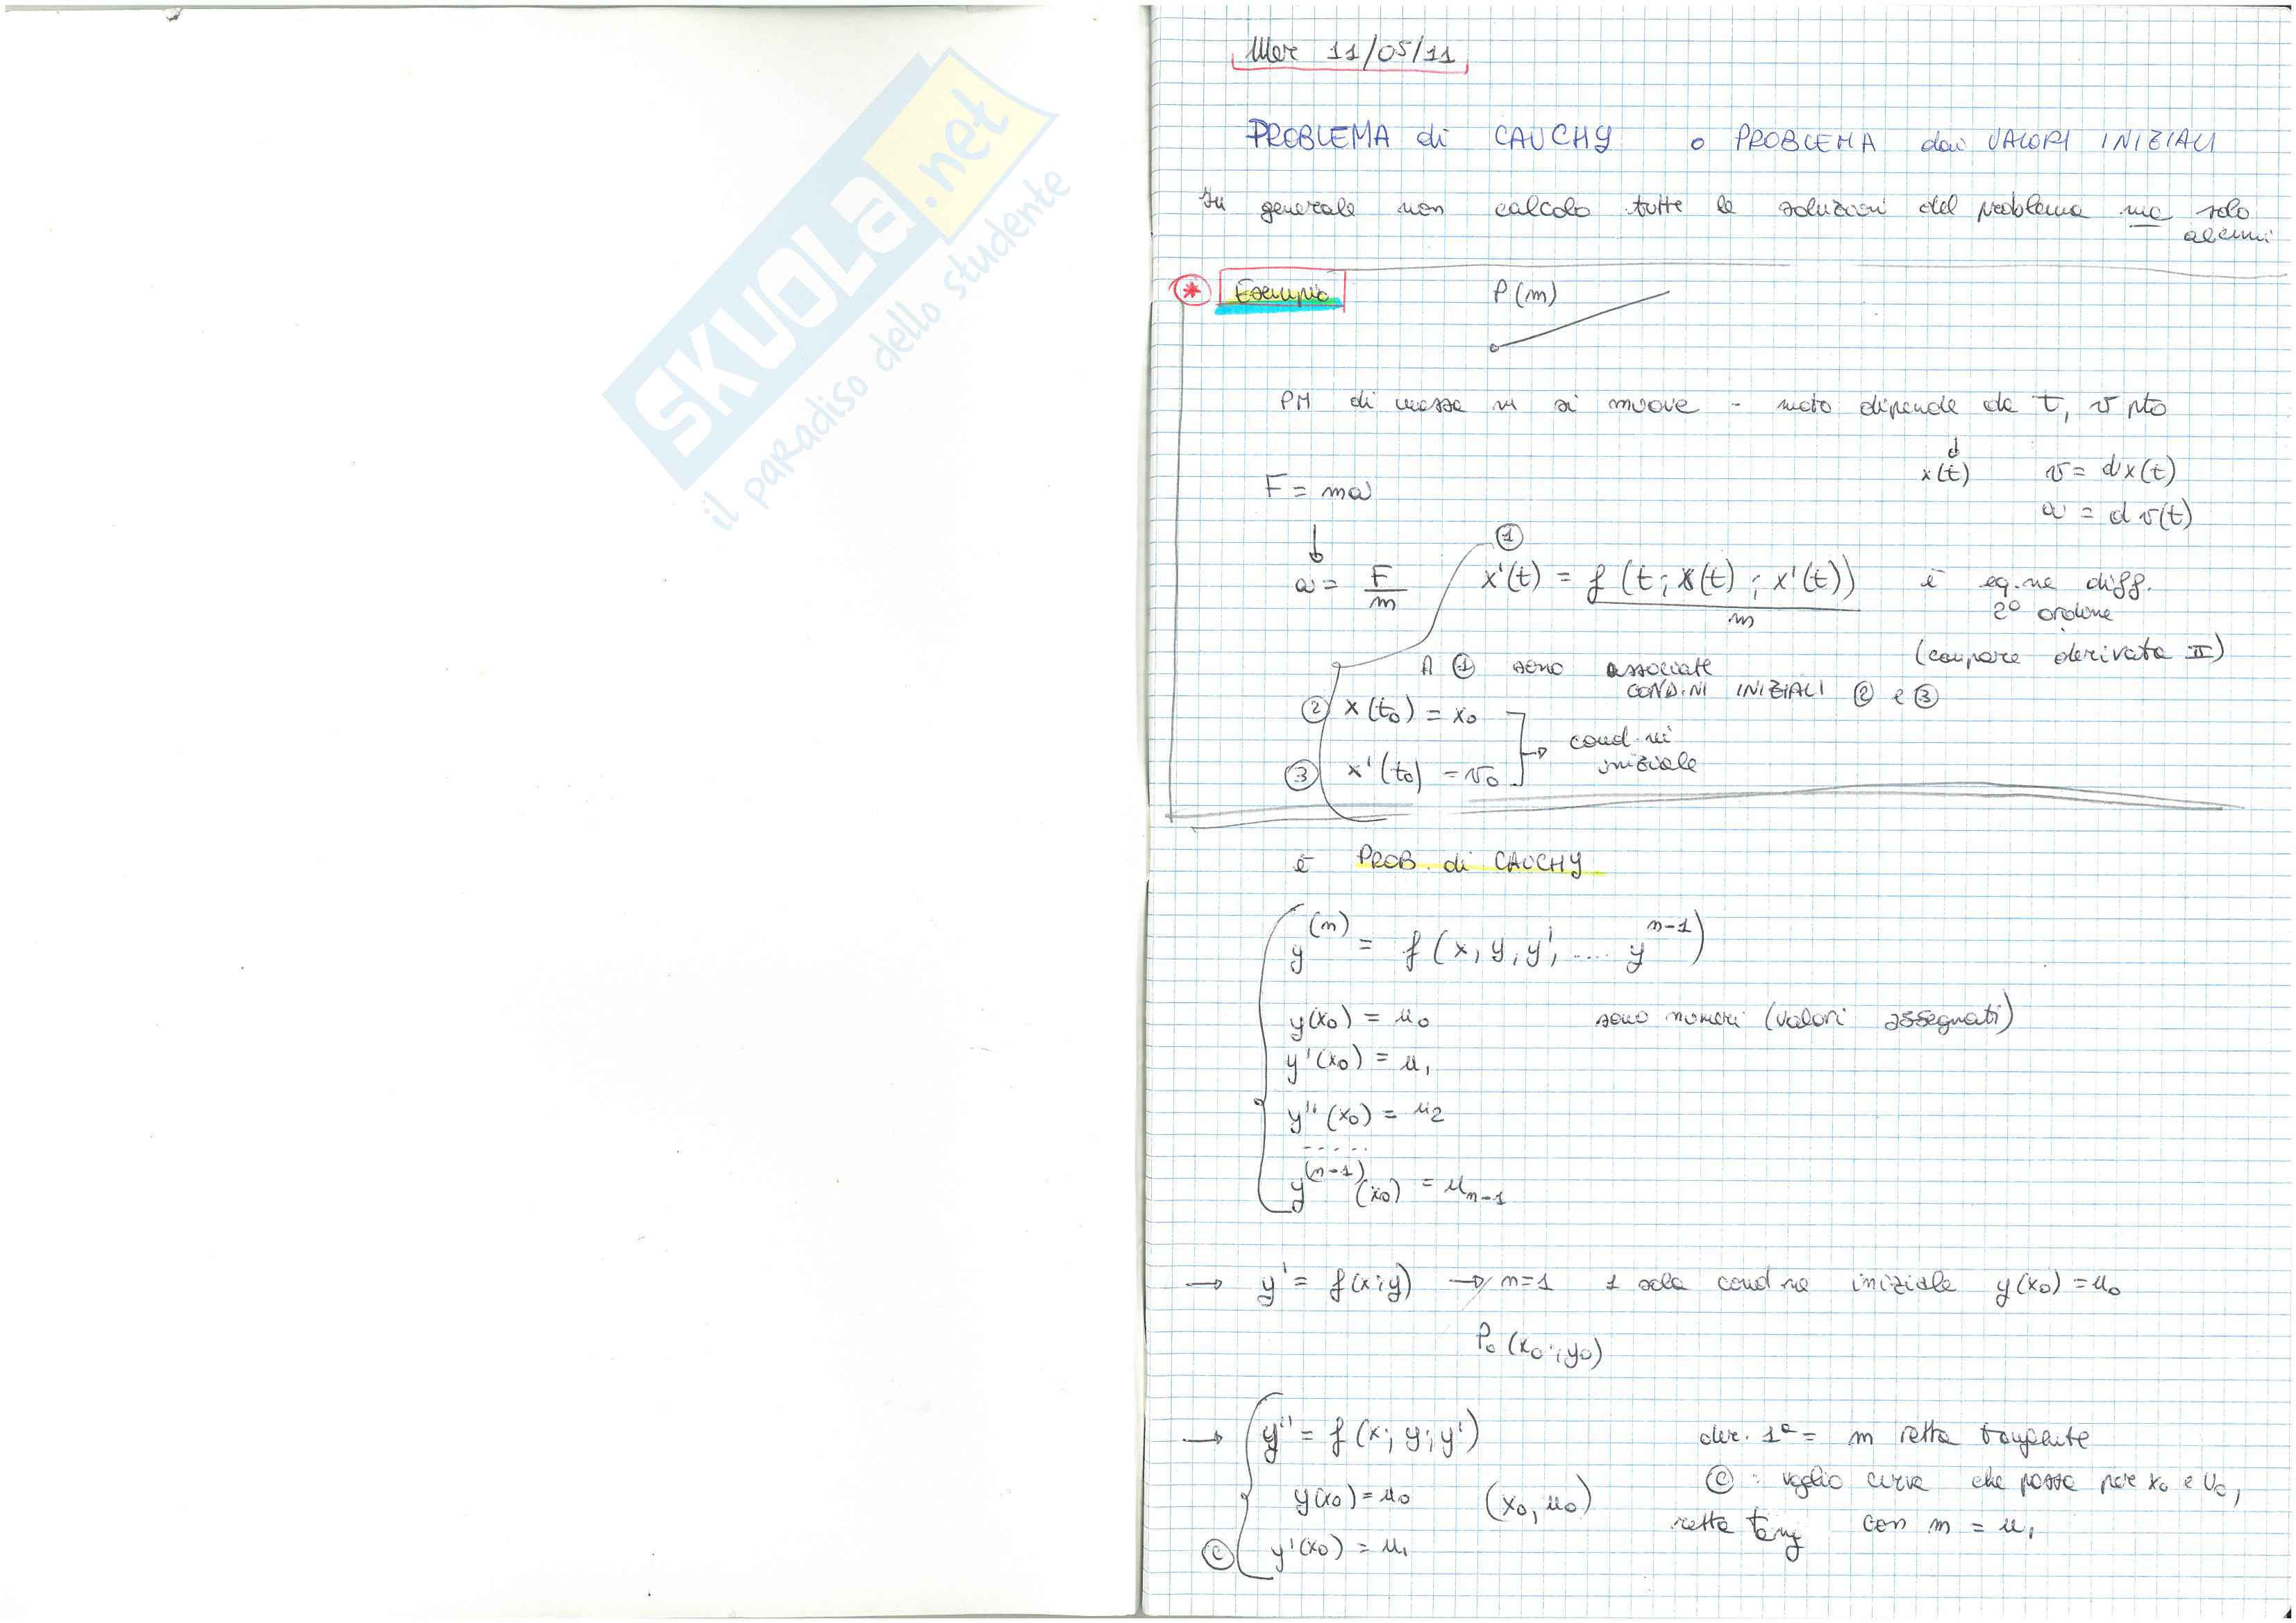 SKUOLA.net
il paradiso dello studente
Mer 11/05/11
PROBLEMA di CAUCHY o PROBLEMA dai VALORI INIZIALI
In generale non calcolo tutte le soluzioni del problema ma solo
alcuni
* Esempio P(m)
PM di massa m si muove - moto dipende da t, v pto
x(t) v = dx(t)
F = ma
a = dv(t)
①
a = F/m x'(t) = f(t; x(t); x'(t))/m è eq.ne diff.
2° ordine
(compare derivata II)
A ① sono associate
COND.NI INIZIALI ② e ③
② x(t₀) = x₀
cond.ni
iniziale
③ x'(t₀) = v₀
è PROB. di CAUCHY
y⁽ⁿ⁾ = f(x, y, y', .... yⁿ⁻¹)
y(x₀) = u₀ sono numeri (valori assegnati)
y'(x₀) = u₁
y''(x₀) = u₂
.....
y⁽ⁿ⁻¹⁾(x₀) = uₙ₋₁
→ y' = f(x;y) → n=1 1 sola cond.ne iniziale y(x₀) = u₀
P₀(x₀;y₀)
→ y'' = f(x; y; y') der. 1ª = m retta tangente
© : voglio curva che passa per x₀ e u₀,
y(x₀) = u₀ (x₀, u₀)
retta tang con m = u₁
© y'(x₀) = u₁